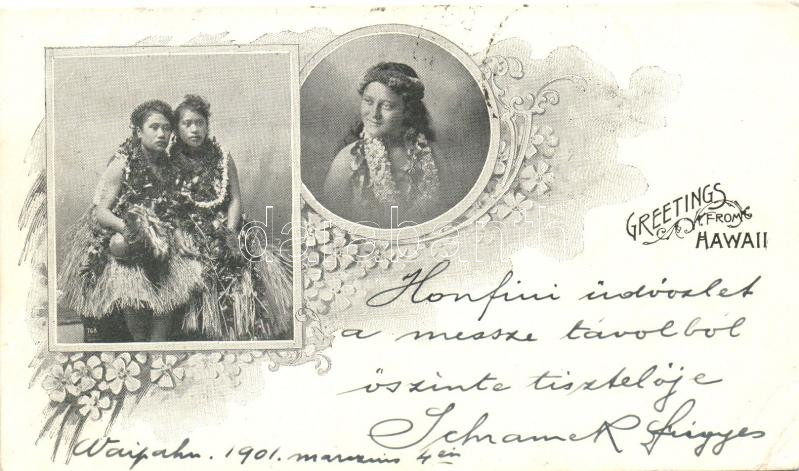 GREETINGS
FROM
HAWAII
Honfiui üdvözlet
a messze távolból
őszinte tisztelője
Schramek Frigyes
Waipahu. 1901. marczius 4én
768